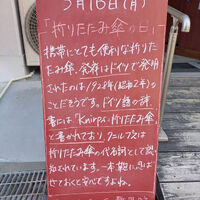 3月16日(月)
「折りたたみ傘の日」
携帯にとても便利な折りた
たみ傘。発祥はドイツで発明
されたのは1928年(昭和2年)の
ことだそうです。ドイツ語の辞
書には「Knirps：折りたたみ傘」
と書かれており、クニルプスは
折りたたみ傘の代名詞として認
知されています。一本鞄に忍ば
せておくと安心ですよね。